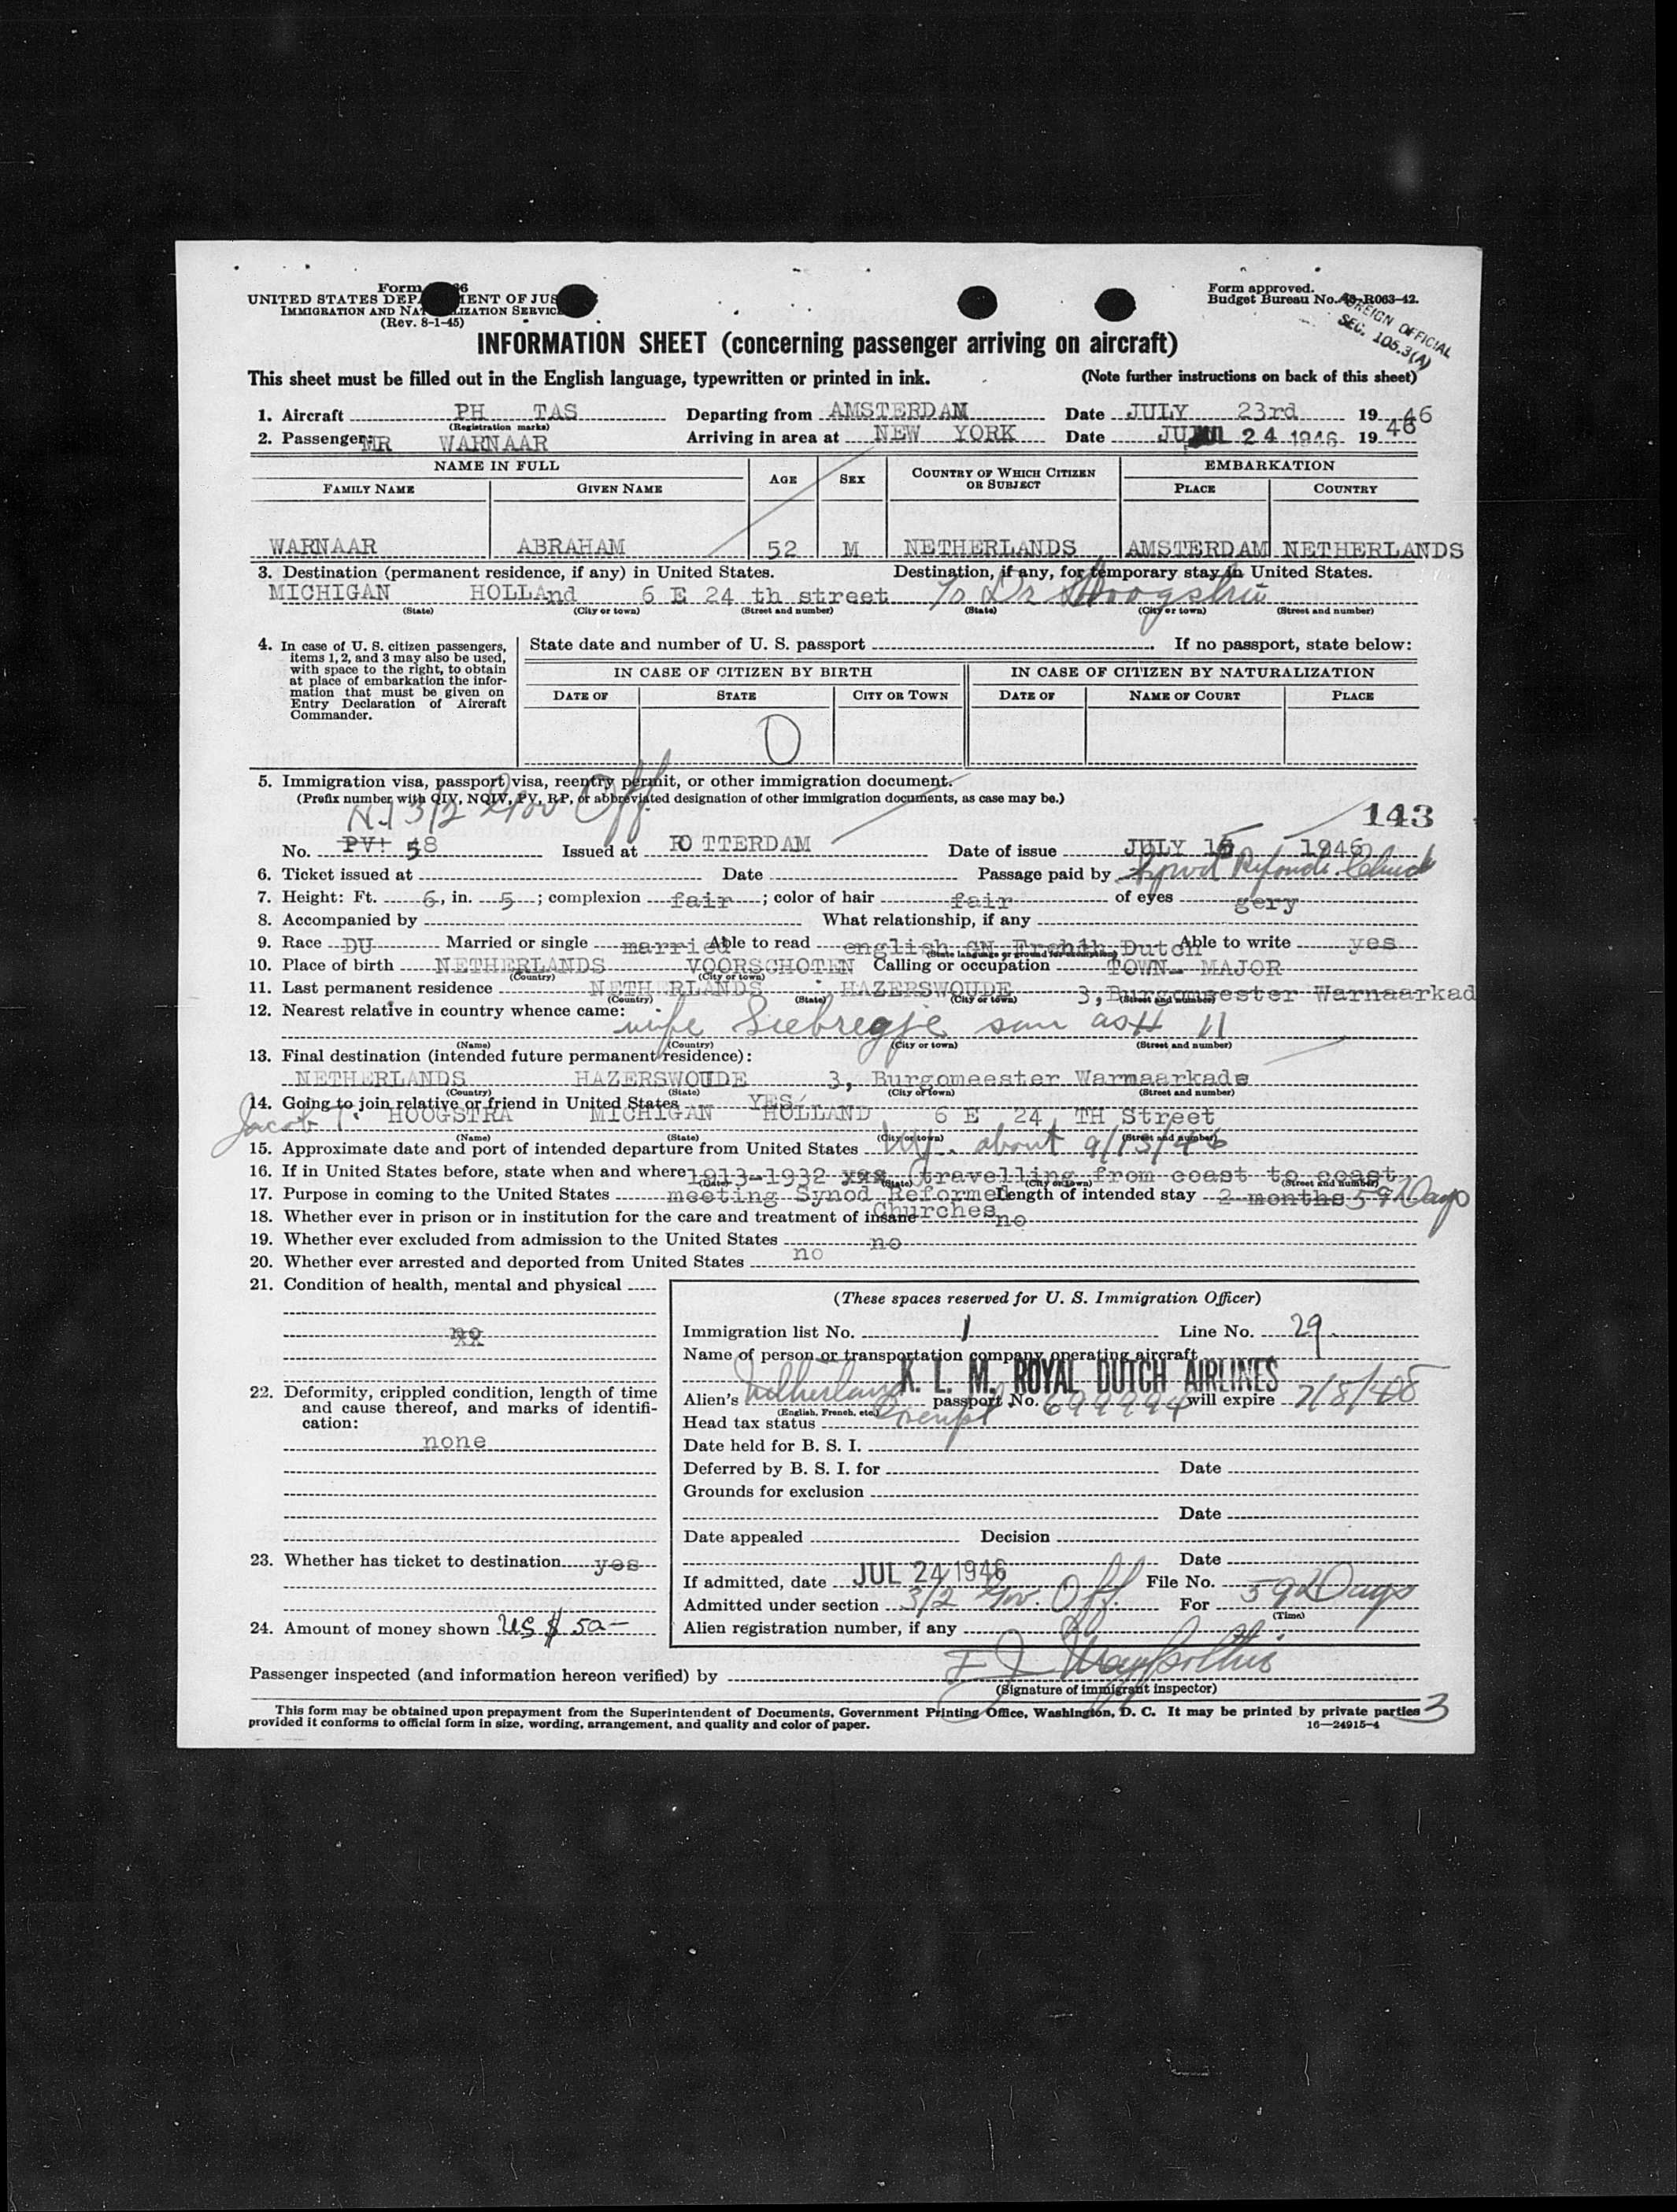 Form 66
UNITED STATES DEP MENT OF JUS
IMMIGRATION AND NAT LIZATION SERVICE
(Rev. 8-1-45)
Form approved.
Budget Bureau No. 43-R063-42.
FOREIGN OFFICIAL
SEC. 105.3(A)
INFORMATION SHEET (concerning passenger arriving on aircraft)
This sheet must be filled out in the English language, typewritten or printed in ink. (Note further instructions on back of this sheet)
1. Aircraft PH TAS Departing from AMSTERDAM Date JULY 23rd 19 46
(Registration marks)
2. Passenger MR WARNAAR Arriving in area at NEW YORK Date JUL 24 1946 19 46
NAME IN FULL AGE SEX COUNTRY OF WHICH CITIZEN OR SUBJECT EMBARKATION
FAMILY NAME GIVEN NAME PLACE COUNTRY
WARNAAR ABRAHAM 52 M NETHERLANDS AMSTERDAM NETHERLANDS
3. Destination (permanent residence, if any) in United States. Destination, if any, for temporary stay in United States.
MICHIGAN HOLLAnd 6 E 24 th street To Dr
(State) (City or town) (Street and number) (State) (City or town) (Street and number)
4. In case of U. S. citizen passengers, items 1, 2, and 3 may also be used, with space to the right, to obtain at place of embarkation the information that must be given on Entry Declaration of Aircraft Commander.
State date and number of U. S. passport If no passport, state below:
IN CASE OF CITIZEN BY BIRTH IN CASE OF CITIZEN BY NATURALIZATION
DATE OF STATE CITY OR TOWN DATE OF NAME OF COURT PLACE
0
5. Immigration visa, passport visa, reentry permit, or other immigration document.
(Prefix number with QIV, NQIV, PV, RP, or abbreviated designation of other immigration documents, as case may be.)
3/2 Gov Off 143
No. PV! 58 Issued at ROTTERDAM Date of issue JULY 15 1946
6. Ticket issued at Date Passage paid by
7. Height: Ft. 6, in. 5; complexion fair; color of hair fair of eyes gery
8. Accompanied by What relationship, if any
9. Race DU Married or single married Able to read english GN French Dutch Able to write yes
(State language or ground for exemption)
10. Place of birth NETHERLANDS VOORSCHOTEN Calling or occupation TOWN- MAJOR
(Country) (City or town)
11. Last permanent residence NETHERLANDS HAZERSWOUDE 3, Burgomeester Warnaarkad
(Country) (State) (City or town) (Street and number)
12. Nearest relative in country whence came:
wife Siebregje sam as # 11
(Name) (Country) (City or town) (Street and number)
13. Final destination (intended future permanent residence):
NETHERLANDS HAZERSWOUDE 3, Burgomeester Warmaarkade
(Country) (State) (City or town) (Street and number)
14. Going to join relative or friend in United States YES
Jacob T. HOOGSTRA MICHIGAN HOLLAND 6 E 24 TH Street
(Name) (State) (City or town) (Street and number)
15. Approximate date and port of intended departure from United States NY. about 9/15/46
16. If in United States before, state when and where 1913-1932 yes (travelling from coast to coast
(Date) (State) (City or town) (Street and number)
17. Purpose in coming to the United States meeting Synod Reformed Churches Length of intended stay 2 months 59 Days
18. Whether ever in prison or in institution for the care and treatment of insane no
19. Whether ever excluded from admission to the United States no
20. Whether ever arrested and deported from United States no
21. Condition of health, mental and physical
no
22. Deformity, crippled condition, length of time and cause thereof, and marks of identification:
none
23. Whether has ticket to destination yes
24. Amount of money shown US $ 50-
(These spaces reserved for U. S. Immigration Officer)
Immigration list No. 1 Line No. 29.
Name of person or transportation company operating aircraft
K. L. M. ROYAL DUTCH AIRLINES
Alien's Netherlands passport No. 699994 will expire 7/8/48
(English, French, etc.)
Head tax status Exempt
Date held for B. S. I.
Deferred by B. S. I. for Date
Grounds for exclusion
Date
Date appealed Decision
Date
If admitted, date JUL 24 1946 File No.
Admitted under section 3/2 Gov. Off. For 59 Days
(Time)
Alien registration number, if any
Passenger inspected (and information hereon verified) by
(Signature of immigrant inspector)
This form may be obtained upon prepayment from the Superintendent of Documents, Government Printing Office, Washington, D. C. It may be printed by private parties 3
provided it conforms to official form in size, wording, arrangement, and quality and color of paper. 16—24915-4